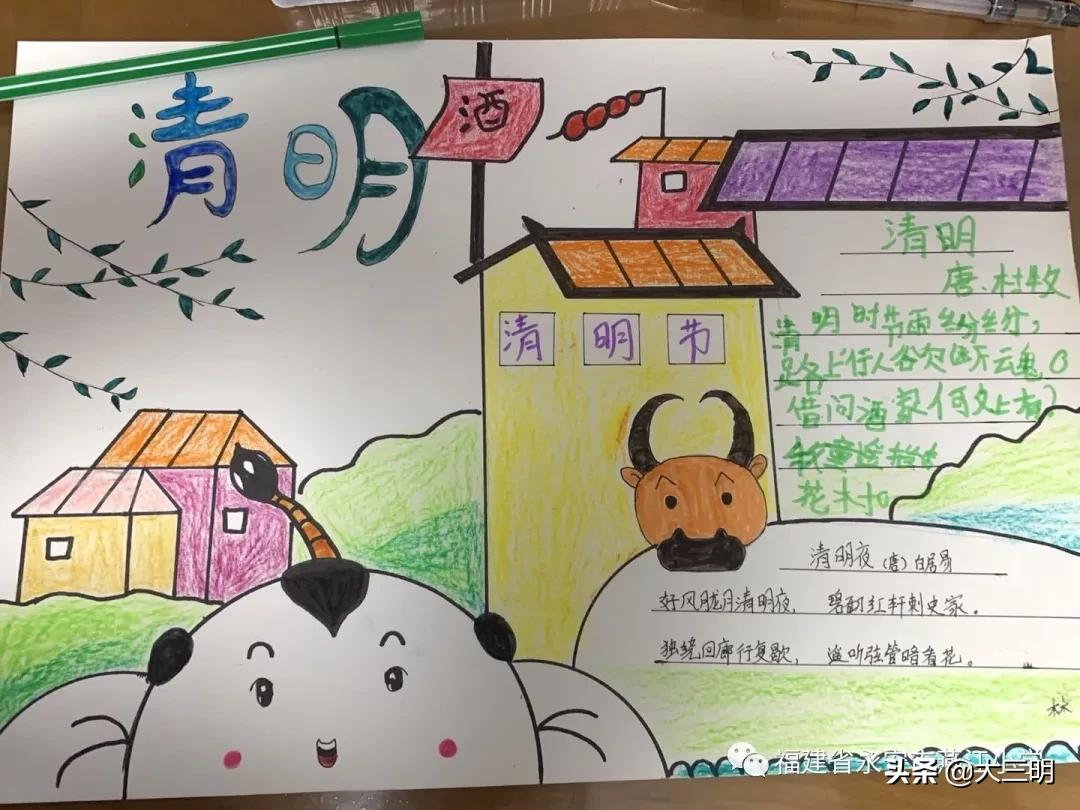 清明
酒
清明节
清明
唐、杜牧
清明时节雨纷纷，
路上行人欲断魂。
借问酒家何处有
牧童遥指
花木
清明夜（唐）白居易
好风胧月清明夜，碧砌红轩刺史家。
独绕回廊行复歇，遥听弦管暗看花。
林
福建省永安市燕江小学
头条 @大三明